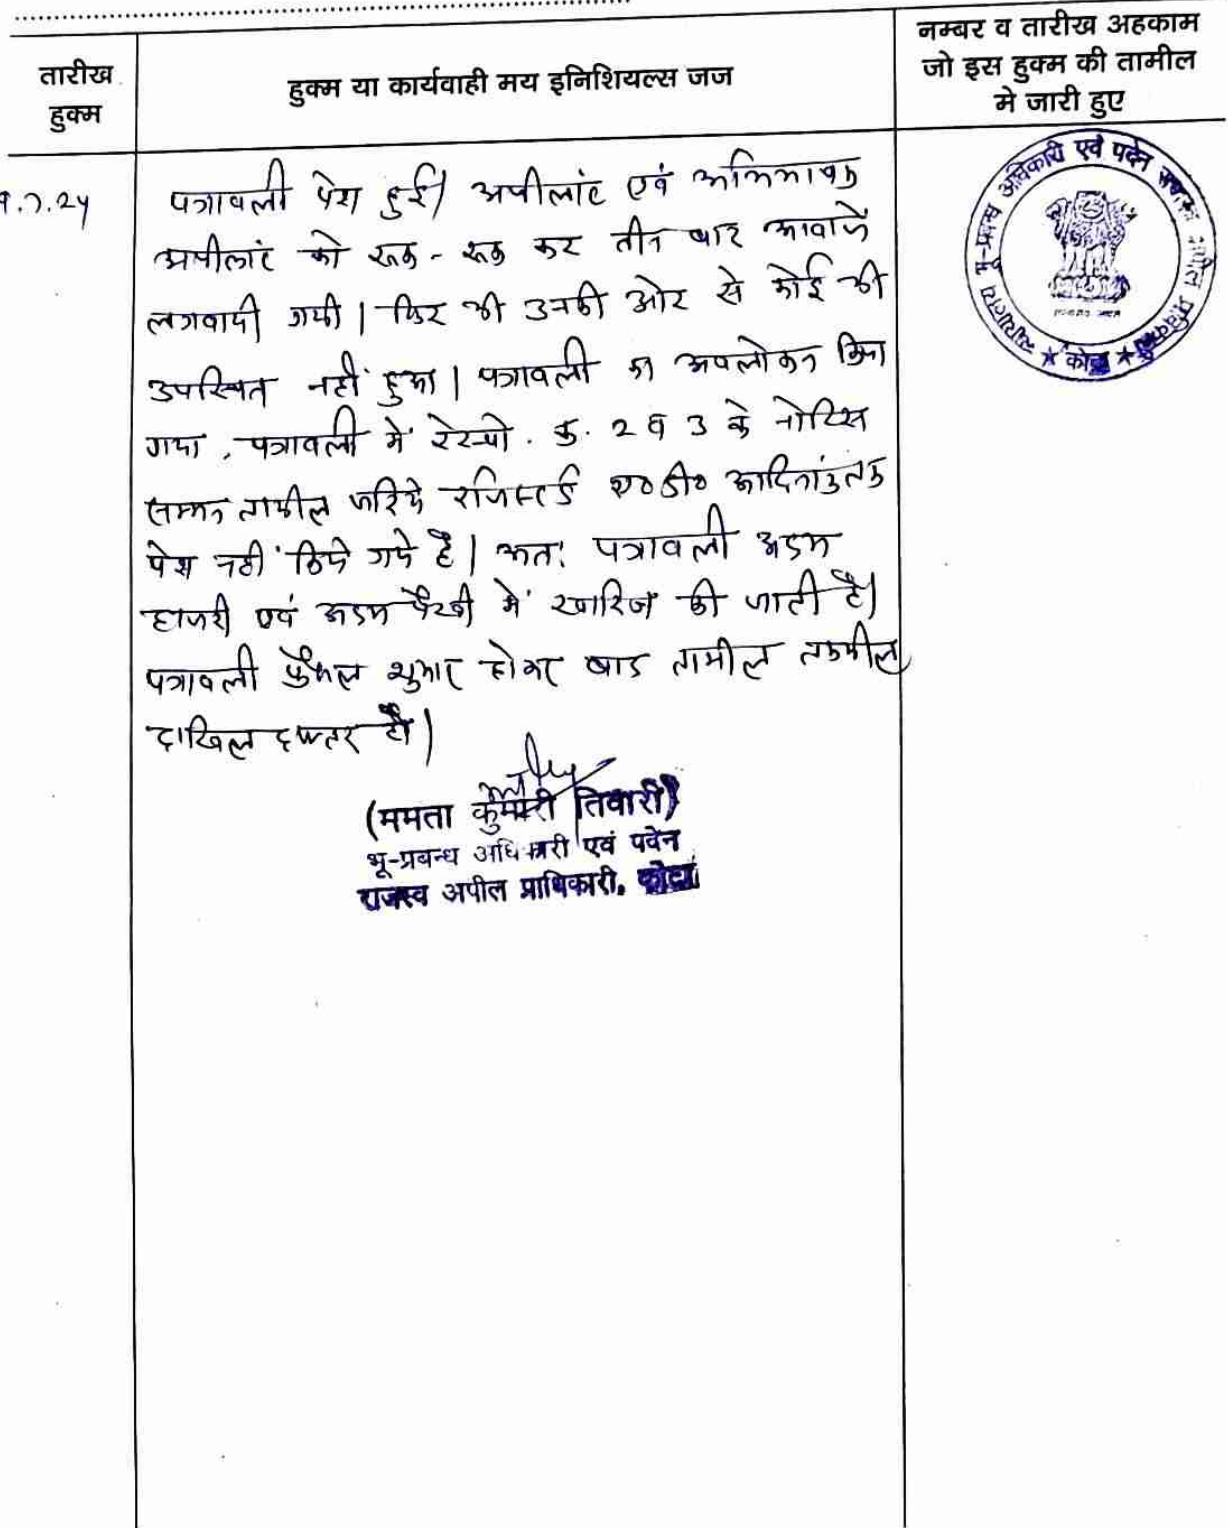 तारीख
हुक्म
हुक्म या कार्यवाही मय इनिशियल्स जज
नम्बर व तारीख अहकाम
जो इस हुक्म की तामील
मे जारी हुए
9.7.24
पत्रावली पेश हुई। अपीलांट एवं अभिभाषक
अपीलांट को रूक - रूक कर तीन बार आवाजें
लगवायी गयी। फिर भी उनकी ओर से कोई भी
उपस्थित नहीं हुआ। पत्रावली का अवलोकन किया
गया, पत्रावली में रेस्पो. क्र. 2 व 3 के नोटिस
सम्मन तामील जरिये रजिस्टर्ड ए०डी० आदिनांक तक
पेश नहीं किये गये है। अतः पत्रावली अदम
हाजरी एवं अदम पैरवी में खारिज की जाती है।
पत्रावली फैसल शुमार होकर बाद तामील तकमील
दाखिल दफ्तर हो।
(ममता कुमारी तिवारी)
भू-प्रबन्ध अधिकारी एवं पदेन
राजस्व अपील प्राधिकारी, कोटा
न्यायालय भू-प्रबन्ध अधिकारी एवं पदेन राजस्व अपील प्राधिकारी
★ कोटा ★